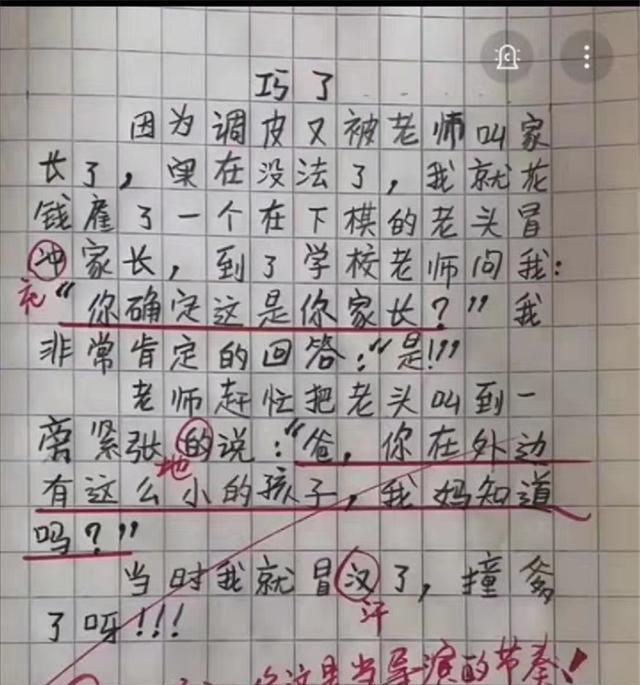 巧了
因为调皮又被老师叫家
长了，实在没法了，我就花
钱雇了一个在下棋的老头冒
冲家长，到了学校老师问我：
充
“你确定这是你家长？”我
非常肯定的回答：“是!!!”
老师赶忙把老头叫到一
旁紧张的说：“爸，你在外边
地
有这么小的孩子，我妈知道
吗？”
当时我就冒汉了，撞爹
汗
了呀!!!
你这是当导演的节奏！